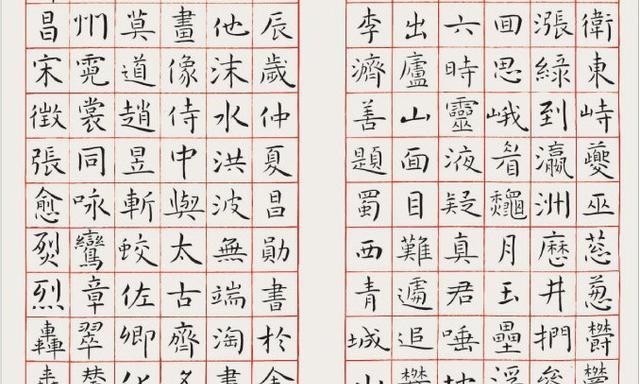 衛東峙夔巫葱葱鬱鬱
漲綠到瀛洲歷井捫參
回思峨眉龝月玉壘浮
六時靈液疑真君唾地
出廬山面目難遽追攀
李濟善題蜀西青城山
辰歲仲夏昌勛書於金
他沫水洪波無端淘
畫像侍中與太古齊名
莫道趙昱斬蛟佐卿化
州霓裳同咏鸞章翠
昌宋徵張愈烈烈轟轟